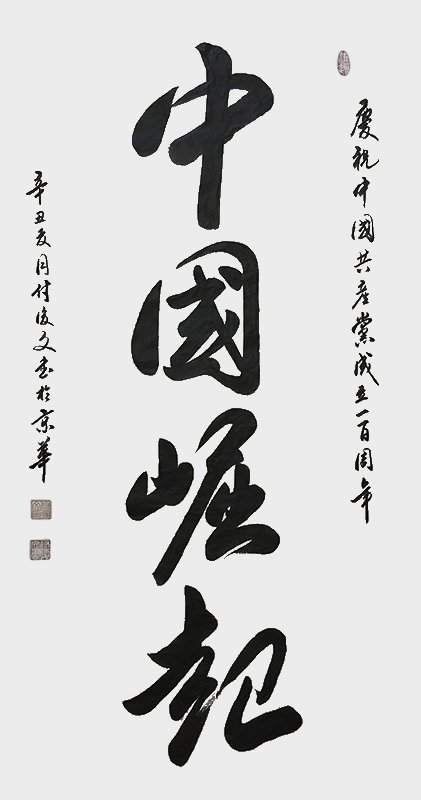 慶祝中國共產黨成立一百周年
中國崛起
辛丑夏月付俊文书於京華